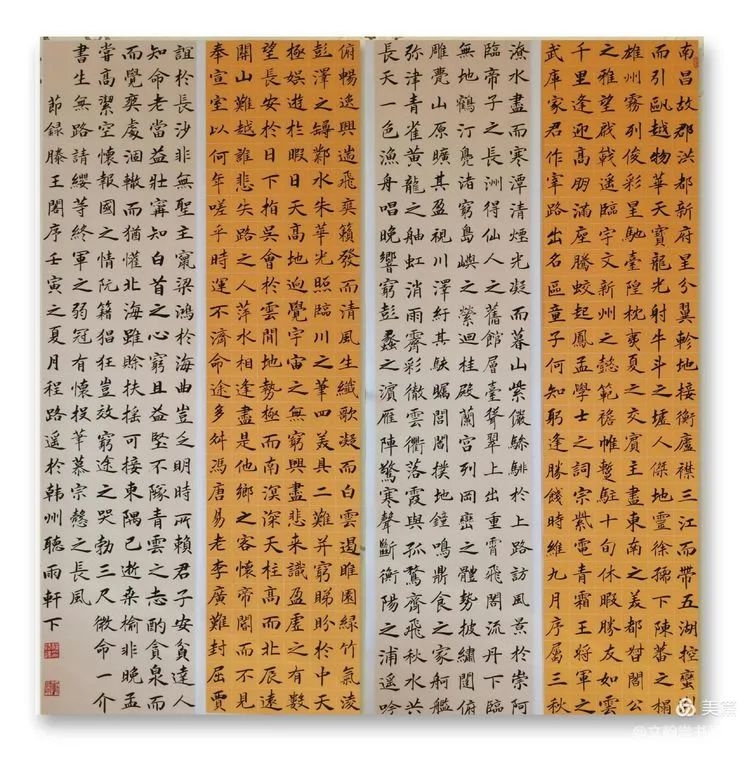 南昌故郡洪都新府星分翼軫地接衡廬襟三江而帶五湖控蠻
而引甌越物華天寶龍光射牛斗之墟人傑地靈徐孺下陳蕃之榻
雄州霧列俊彩星馳臺隍枕夷夏之交賓主盡東南之美都督閻公
之雅望棨戟遙臨宇文新州之懿範襜帷暫駐十旬休暇勝友如雲
千里逢迎高朋滿座騰蛟起鳳孟學士之詞宗紫電青霜王將軍之
武庫家君作宰路出名區童子何知躬逢勝餞時維九月序屬三秋
潦水盡而寒潭清煙光凝而暮山紫儼驂騑於上路訪風景於崇阿
臨帝子之長洲得仙人之舊館層臺聳翠上出重霄飛閣流丹下臨
無地鶴汀鳧渚窮島嶼之縈迴桂殿蘭宮列岡巒之體勢披繡闥俯
雕甍山原曠其盈視川澤紆其駭矚閭閻撲地鐘鳴鼎食之家舸艦
彌津青雀黃龍之舳虹消雨霽彩徹雲衢落霞與孤鶩齊飛秋水共
長天一色漁舟唱晚響窮彭蠡之濱雁陣驚寒聲斷衡陽之浦遙吟
俯暢逸興遄飛爽籟發而清風生纖歌凝而白雲遏睢園綠竹氣淩
彭澤之罇鄴水朱華光照臨川之筆四美具二難并窮睇眄於中天
極娛遊於暇日天高地迥覺宇宙之無窮興盡悲來識盈虛之有數
望長安於日下指吳會於雲間地勢極而南溟深天柱高而北辰遠
關山難越誰悲失路之人萍水相逢盡是他鄉之客懷帝閽而不見
奉宣室以何年嗟乎時運不濟命途多舛馮唐易老李廣難封屈賈
誼於長沙非無聖主竄梁鴻於海曲豈乏明時所賴君子安貧達人
知命老當益壯寧知白首之心窮且益堅不墜青雲之志酌貪泉而
而覺爽處涸轍而猶懽北海雖賒扶搖可接東隅已逝桑榆非晚孟
嘗高潔空懷報國之情阮籍猖狂豈效窮途之哭勃三尺微命一介
書生無路請纓等終軍之弱冠有懷投筆慕宗愨之長風
節錄滕王閣序壬寅之夏月程路遙於韓州聽雨軒下
美篇